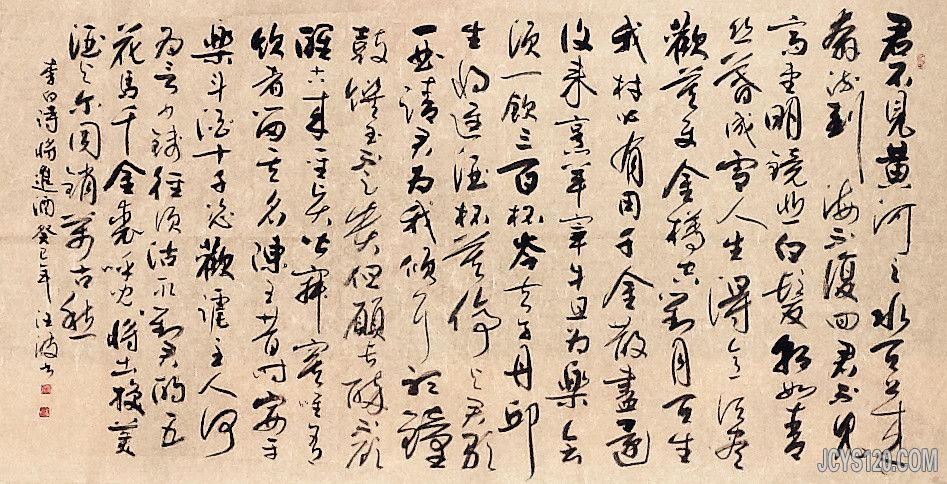 君不見黃河之水天上来
奔流到海不復回君不見
高堂明鏡悲白髮朝如青
丝暮成雪人生得意須盡
歡莫使金樽空對月天生
我材必有用千金散盡還
復来烹羊宰牛且为樂会
須一飲三百杯岑夫子丹邱
生将進酒杯莫停与君歌
一曲請君为我傾耳聽鐘
鼓饌玉不足貴但願長醉不願
醒古来聖賢皆寂寞唯有
飲者留其名陳王昔时宴平
樂斗酒十千恣歡謔主人何
为言少錢徑須沽取對君酌五
花馬千金裘呼児将出換美
酒与尔同銷萬古愁
李白詩将進酒癸巳年汪波书
JCYS120.COM